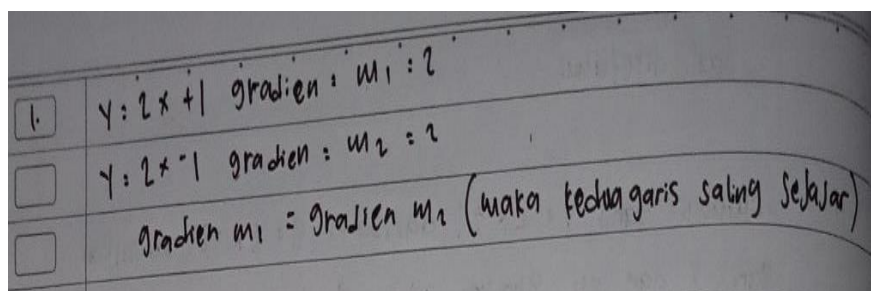 1. y = 2x + 1 gradien = m₁ = 2
y = 2x - 1 gradien = m₂ = 2
gradien m₁ = gradien m₂ (maka kedua garis saling sejajar)